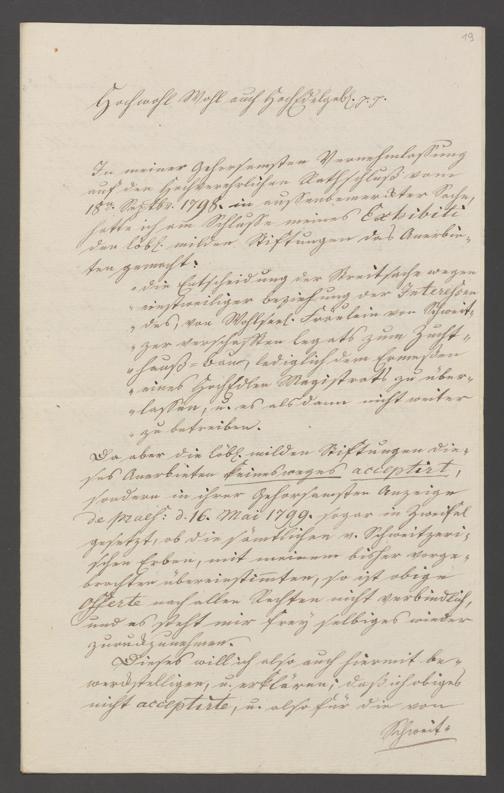 19
Hochwohl Wohl auch HochEdelgeb. p. p.
In meiner Gehorsamsten Vernehmlassung
auf den Hochverehrlichen Rathschluß vom
18ten Septbr. 1798. in aussenbemerkter Sache,
hatte ich am Schlusse meines Exhibiti
den löbl. milden Stiftungen das Anerbie-
ten gemacht:
"die Entscheidung der Streitsache wegen
"einstweiliger beziehung der Interessen
"des, von Wohlseel. Fräulein von Schweit-
"zer verschafften Legats zum Zucht-
"hauß-bau, lediglich dem Ermessen
"eines HochEdlen Magistrats zu über-
"lassen, u. es alsdann nicht weiter
"zu betreiben.
Da aber die löbl. milden Stiftungen die-
ses Anerbieten keinesweges acceptirt,
sondern in ihrer Gehorsamsten Anzeige
de praes: d. 16. Mai 1799. sogar in Zweifel
gesetzt, ob die sämtlichen v. Schweitzeri-
schen Erben, mit meinem bisher vorge-
brachten übereinstimmten, so ist obige
Offerte nach allen Rechten nicht verbindlich,
und es steht mir frey selbiges wieder
zurückzunehmen.
Dieses will ich also auch hiermit be-
werckstelligen, u. erklären; daß ich obiges
nicht acceptirte, u. also für die von
Schweit-